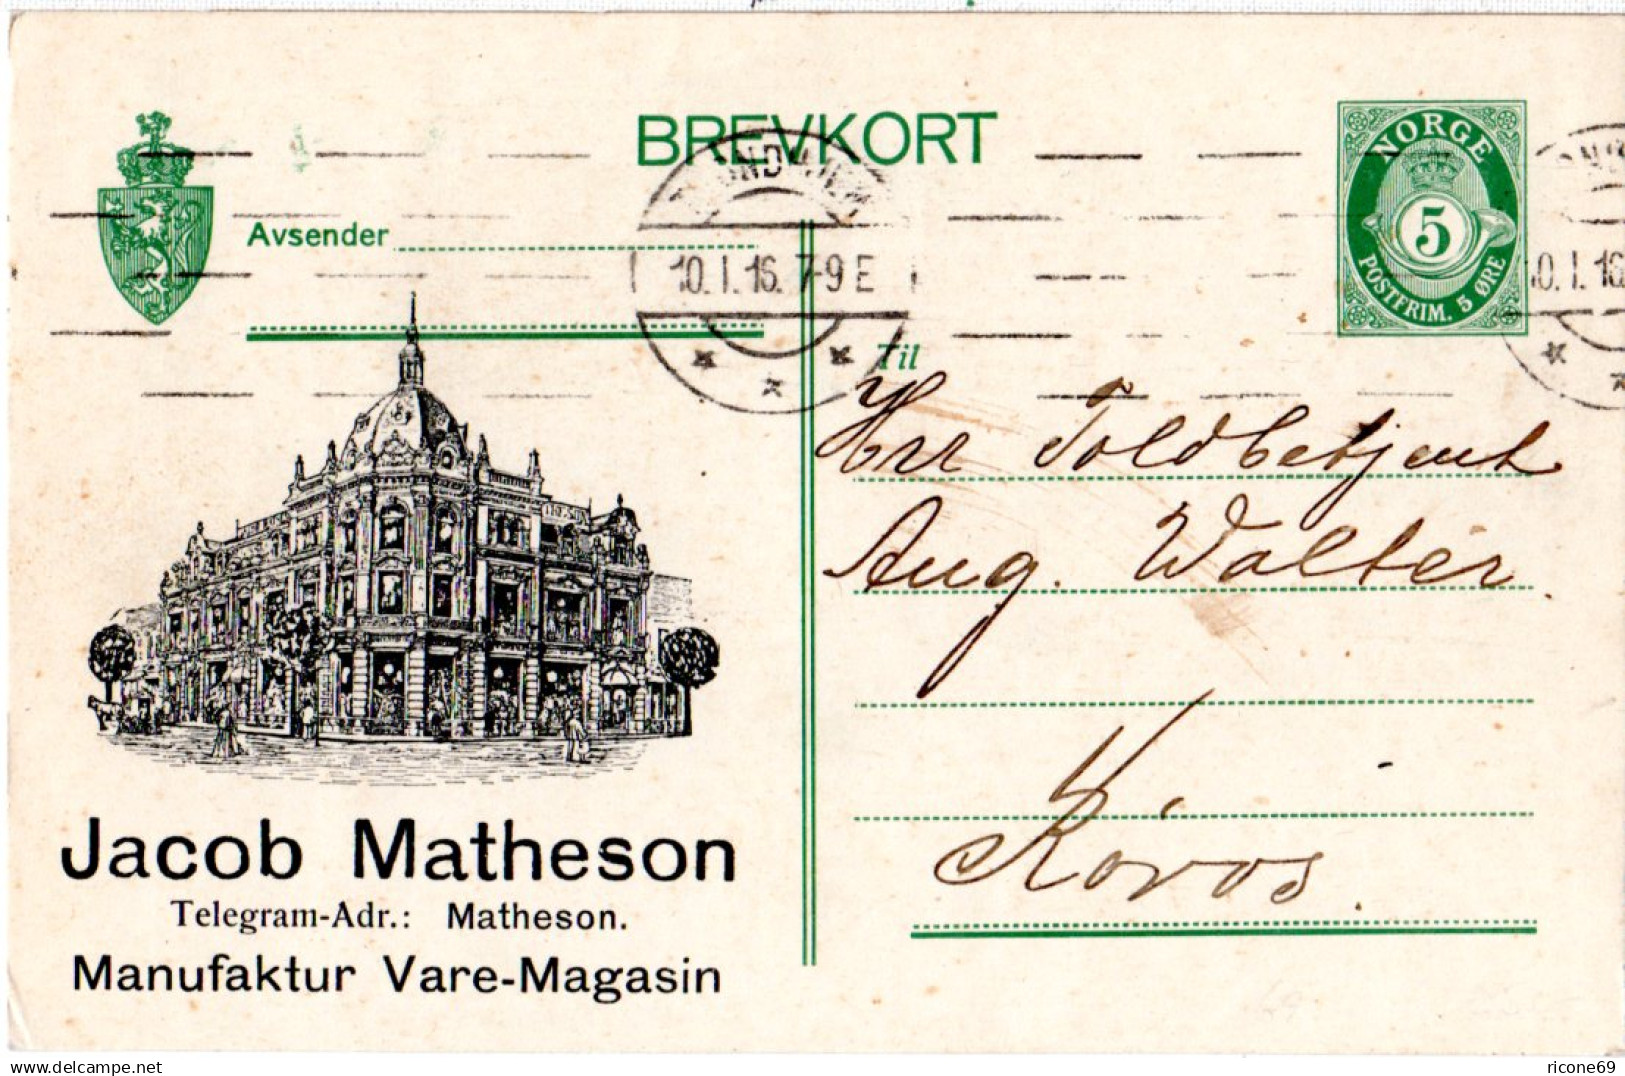 BREVKORT
NORGE
5
POSTFRIM. 5 ØRE
Avsender
TRONDHJEM
10.I.16.7-9E
0.I.16
Til
Hrr Toldbetjent
Aug. Walter
Röros.
Jacob Matheson
Telegram-Adr.: Matheson.
Manufaktur Vare-Magasin
delcampe.net
ricone69